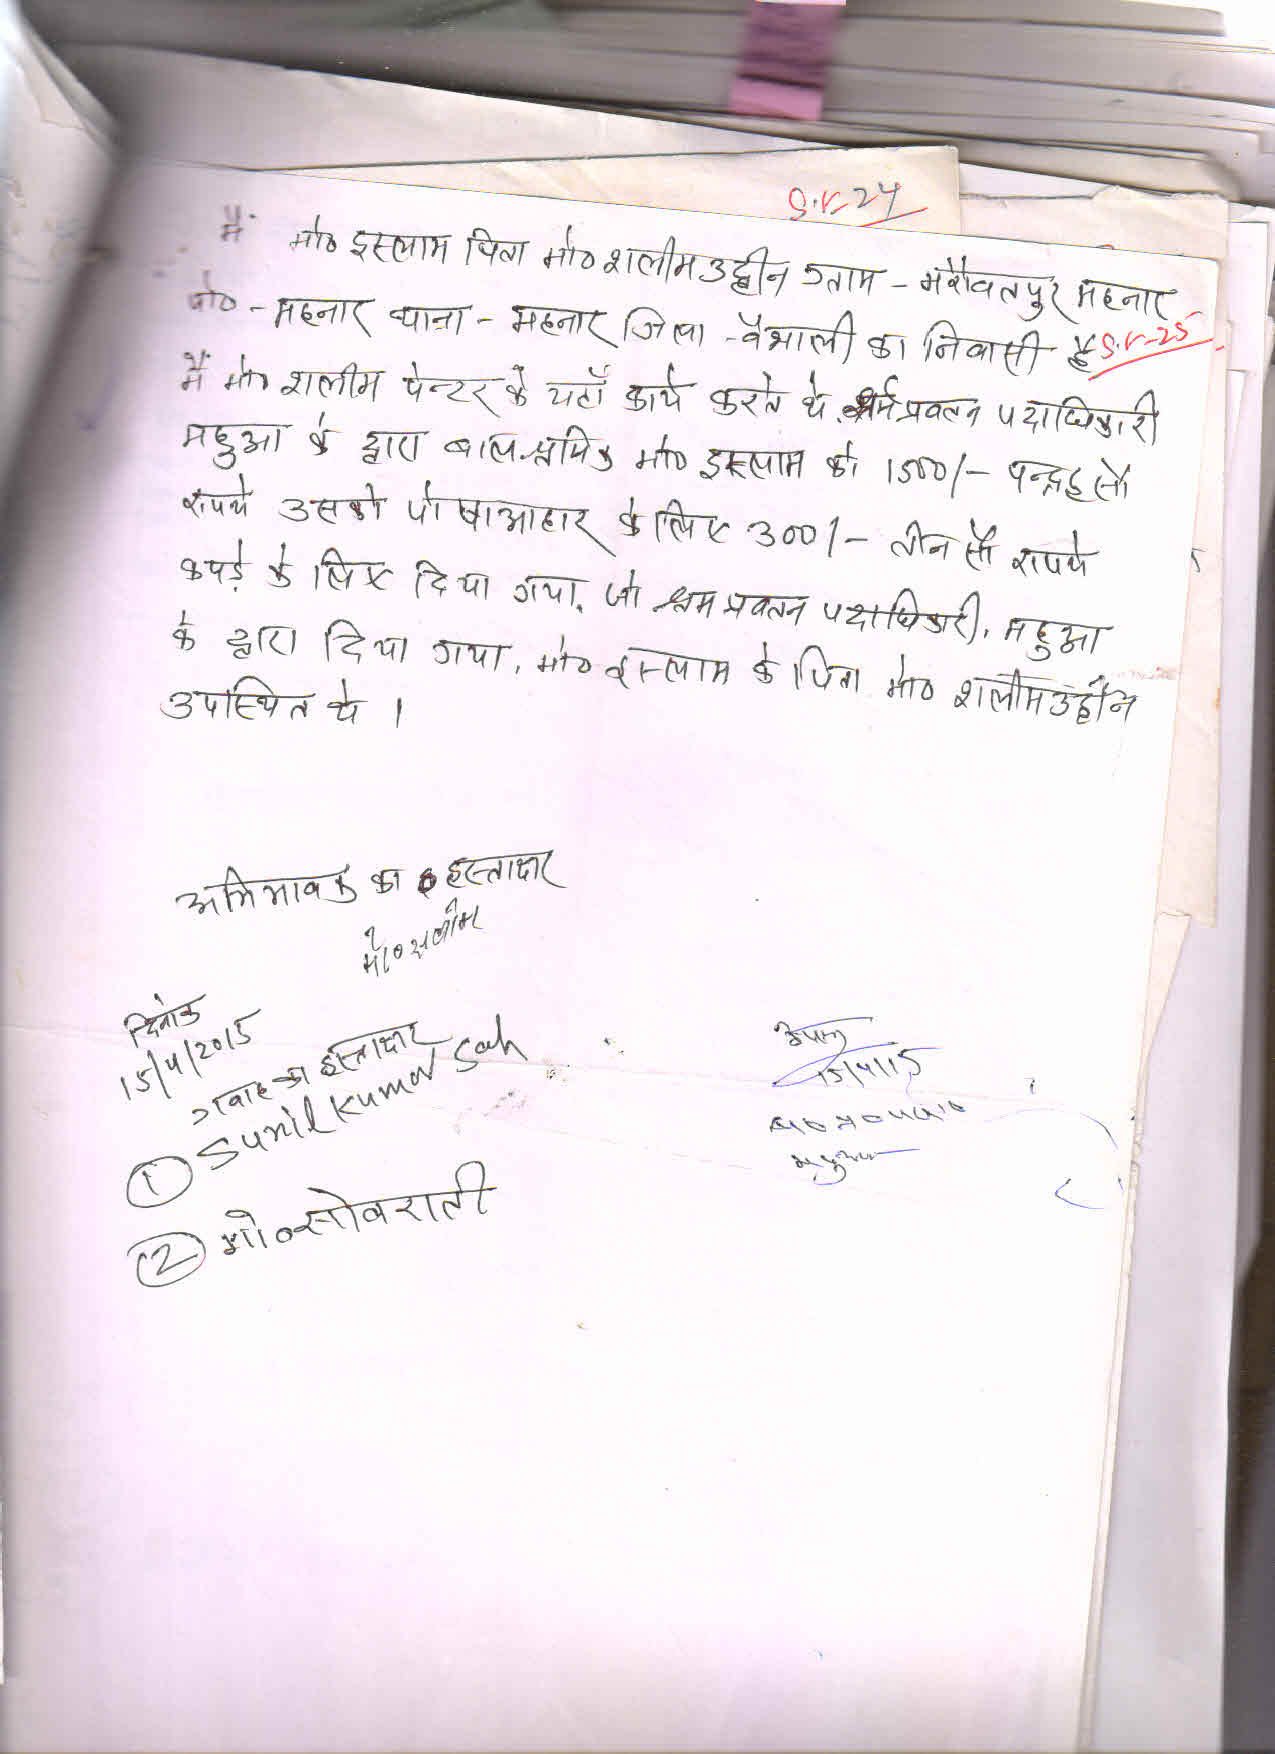 S.V-24
मैं मो० इस्लाम पिता मो० शलीमउद्दीन ग्राम - मरौवतपुर महनार
पो० - महनार थाना - महनार जिला - वैशाली का निवासी हूँ S.V-25
मैं मो० शलीम पेन्टर के यहाँ कार्य करते थे. श्रम प्रवतन पदाधिकारी
महुआ के द्वारा बाल श्रमिक मो० इस्लाम को 1500/- पन्द्रह सौ
रूपये उसको पोषाआहार के लिए 300/- तीन सौ रूपये
कपड़े के लिए दिया गया. जो श्रम प्रवतन पदाधिकारी, महुआ
के द्वारा दिया गया, मो० इस्लाम के पिता मो० शलीमउद्दीन
उपस्थित थे ।
अभिभावक का हस्ताक्षर
मो० सलीम
दिनांक
15/4/2015
गवाह का हस्ताक्षर
① Sunil Kumar Sah
② मो० सोवराती
15/4/15
महुआ